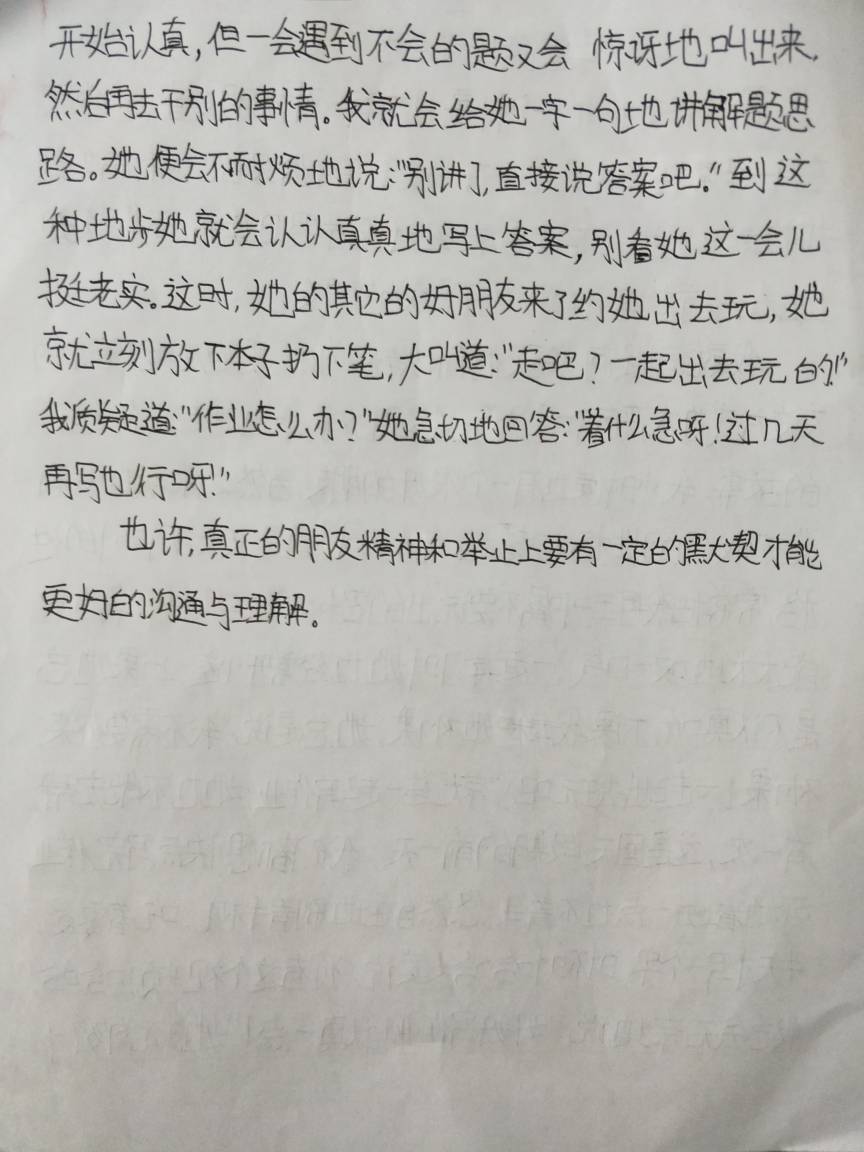 开始认真，但一会遇到不会的题又会 惊讶地叫出来，
然后再去干别的事情。我就会给她一字一句地讲解题思
路。她便会不耐烦地说：“别讲了，直接说答案吧。”到这
种地步她就会认认真真地写上答案，别看她这一会儿
挺老实。这时，她的其它的好朋友来了约她出去玩，她
就立刻放下本子扔下笔，大叫道：“走吧？一起出去玩的！”
我质疑道：“作业怎么办？”她急切地回答：“着什么急呀！过几天
再写也行呀！”
也许，真正的朋友精神和举止上要有一定的默契才能
更好的沟通与理解。